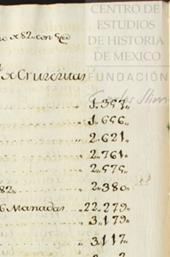 CENTRO DE
ESTUDIOS
DE HISTORIA
DE MEXICO
FUNDACIÓN
Carlos Slim
82. con
Cruzeritas
1.357,,
1.656,,
2.621,,
2.761,,
2.575,,
82.. 2.380,,
6 Manadas 22.279,,
3.179,,
3.117,,